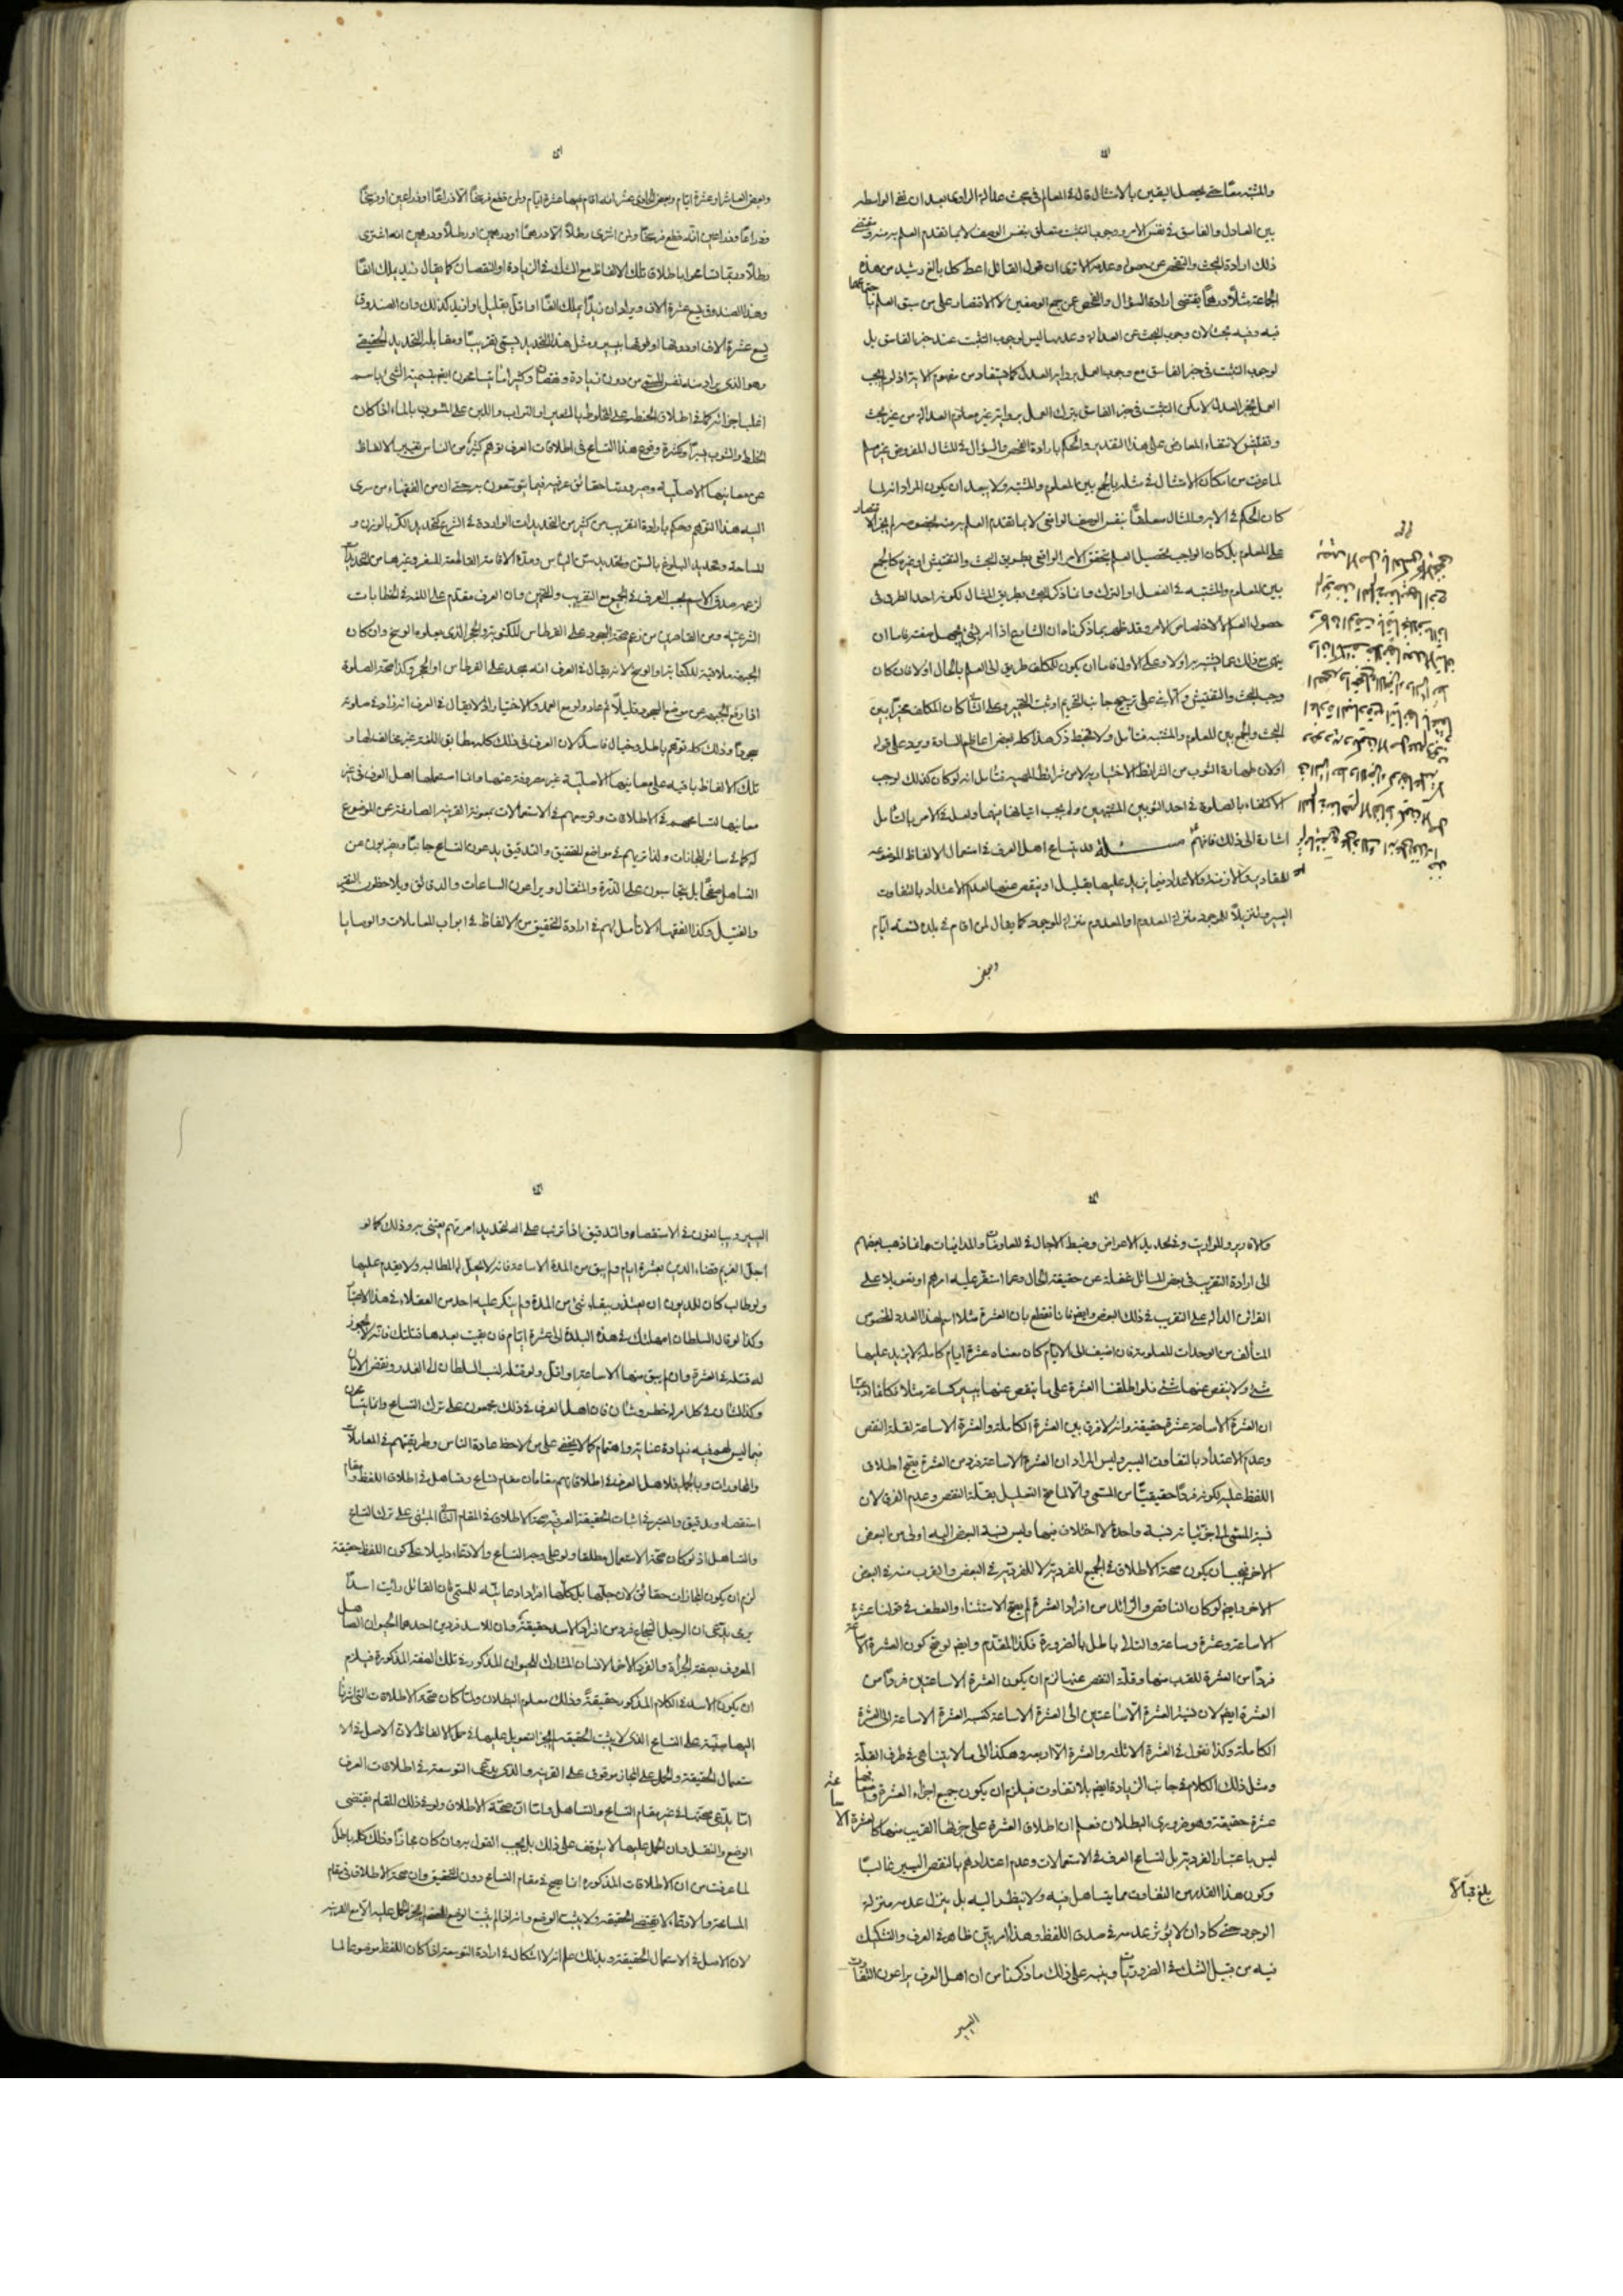 والمشتبه معًا حتى يحصل اليقين بالامتثال قال في المعالم في بحث عدالة الراوى بعد ان نفى الواسطه
بين العادل والفاسق في نفس الامر ووجوب التثبت متعلق بنفس الوصف لا بما تقدم العلم به منه ومقتضى
ذلك ارادة البحث والتفحص عن حصوله وعدمه الا ترى ان قول القائل اعط كل بالغ رشيد من هذه
الجماعة مثلًا درهمًا يقتضى ارادة السؤال والفحص عن جمع الوصفين لا الاقتصار على من سبق العلم باجتماعهما
فيه وفيه بحث لان وجوب البحث عن العدالة وعدمها ليس لوجوب التثبت عند خبر الفاسق بل
لوجوب التثبت في خبر الفاسق مع وجوب العمل برواية العدل كما يستفاد من مفهوم الاية اذ لو لم يجب
العمل بخبر العدل لامكن التثبت في خبر الفاسق بترك العمل برواية غير معلوم العدالة من غير بحث
وتفتيش لانتفاء المعارض على هذا التقدير والحكم بارادة الفحص والسؤال في المثال المفروض غير مسلم
لما عرفت من امكان الامتثال في مثله بالجمع بين المعلوم والمشتبه ولا يبعد ان يكون المراد انه لما
كان الحكم في الاية والمثال معلقًا بنفس الوصف الواقعى لا بما تقدم العلم به منه بخصوصه لم يجز الاقتصار
على المعلوم بل كان الواجب تحصيل العلم بتحقق الامر الواقعى بطريق البحث والتفتيش او غيره كالجمع
بين المعلوم والمشتبه في الفعل او الترك وانما ذكر البحث بطريق المثال لكونه احد الطرق في
حصول العلم لا لاختصاص الامر وقد ظهر بما ذكرناه ان الشارع اذا امر بشئ مجمل مفتر فاما ان
ينهى مع ذلك عما يشتبه به او لا وعلى الاول فاما ان يكون للمكلف طريق الى العلم بالحال او لا فان كان
وجب البحث والتفتيش والا بنى على ترجيح جانب التحريم او ثبت التخيير وعلى الثانى كان المكلف مخيرًا بين
البحث والجمع بين المعلوم والمشتبه فتأمل ولا تخبط ذكر هذا كله بعض اعاظم السادة ويرد على قوله
اولا ان طهارة الثوب من الشرائط الاختيارية لا من شرائط المهية فتأمل انه لو كان كذلك لوجب
الاكتفاء بالصلوة في احد الثوبين المشتبهين ولم يجب اتيانها فيهما ولعل في الامر بالتأمل
اشارة الى ذلك فافهم مسئلة قد يتسامح اهل العرف في استعمال الالفاظ الموضوعه
للمقادير والازمنة والاعداد فيما يزيد عليها بقليل او ينقص عنها لعدم الاعتداد بالتفاوت
اليسير وتنزيلًا للموجود منزلة المعدوم او المعدوم منزلة الموجود كما يقال لمن اقام في بلدة تسعة ايام
وبعض
وبعض العاشر او عشرة ايام وبعض الحادى عشر انه اقام فيها عشرة ايام ولمن قطع فرسخًا الا ذراعًا او ذراعين او فرسخًا
وذراعًا وذراعين انه قطع فرسخًا ولمن اشترى رطلًا الا درهمًا او درهمين او رطلًا ودرهمين انه اشترى
رطلًا وربما تسامحوا باطلاق تلك الالفاظ مع الشك في الزيادة او النقصان كما يقال زيد يملك الفًا
وهذا الصندوق يسع عشرة الاف ويراد ان زيدًا يملك الفًا او اقل بقليل او ازيد كذلك وان الصندوق
يسع عشرة الاف او دونها او فوقها بيسير ومثل هذا التحديد يسمى تقريبيًا ومقابله التحديد الحقيقى
وهو الذى يراد منه نفس المسمى من دون زيادة ونقصان وكثيرًا ما يتسامحون ايضًا بتسمية الشئ باسم
اغلب اجزائه كما في اطلاق الحنطة على المخلوط بالشعير او التراب واللبن على المشوب بالماء اذا كان
الخلط والشوب يسيرًا ولكثرة وقوع هذا التسامح في اطلاقات العرف توهم كثير من الناس تغيير الالفاظ
عن معانيها الاصلية وصيرورتها حقائق عرفية فيما يتوسعون به حتى ان من الفقهاء من سرى
اليه هذا التوهم وحكم بارادة التقريب من كثير من التحديدات الواردة في الشرع كتحديد الكر بالوزن و
المساحة وتحديد البلوغ بالسن وتحديد سن اليأس ومدة الاقامة القاطعة للسفر وغيرها من التحديدات
لزعمه صدق الاسم بحسب العرف في الجميع مع التقريب والتخمين وان العرف مقدم على اللغة في الخطابات
الشرعية ومن القاصرين من زعم صحة السجود على القرطاس المكتوب والحجر الذى يعلوه الوسخ وان كان
الجبهة ملاقية للكتابة او الوسخ لانه يقال في العرف انه سجد على القرطاس او الحجر وكذا صحة الصلوة
اذا رفع الجبهة عن موضع السجود قليلًا ثم عاد ولو مع العمد والاختيار اذ لا يقال في العرف انه زاد في صلوته
سجودًا وذلك كله توهم باطل وخيال فاسد لان العرف في ذلك كله مطابق للغة غير مخالف لها و
تلك الالفاظ باقية على معانيها الاصلية غير مصروفة عنها وانما استعملها اهل العرف في غير
معانيها لتسامحهم في الاطلاقات وتوسعهم في الاستعمالات بمعونة القرينة الصارفة عن الموضوع
له كما في سائر المجازات ولذا تريهم في مواضع التحقيق والتدقيق يدعون التسامح جانبًا ويضربون عن
التساهل صفحًا بل يحاسبون على الذرة والمثقال ويراعون الساعات والدقائق ويلاحظون النقير
والفتيل وكذا الفقهاء لا تأمل لهم في ارادة التحقيق من الالفاظ في ابواب المعاملات والوصايا
والاقارير والمواريث وتحديد الاعراض وضبط الاجال في المعاوضات والمداينات وانما ذهب بعضهم
الى ارادة التقريب في بعض المسائل غفلة عن حقيقة الحال وعما استقر عليه امرهم او تعويلا على
القرائن الدالة على التقريب في ذلك البعض وايضا فانا نقطع بان العشرة مثلا اسم لهذا العدد المخصوص
المتألف من الوحدات المعلومة فان اضيف الى الايام كان معناه عشرة ايام كاملة لا يزيد عليها
شئ ولا ينقص عنها شئ فلو اطلقنا العشرة على ما ينقص عنها بيسير كساعة مثلا فكأنا ادعينا
ان العشرة الا ساعة عشرة حقيقة وانه لا فرق بين العشرة الكاملة والعشرة الا ساعة لقلة النقص
وعدم الاعتداد بالتفاوت اليسير وليس المراد ان العشرة الا ساعة فرد من العشرة يصح اطلاق
اللفظ عليه لكونه فردًا حقيقيًا من المسمى والا لما صح التعليل بقلة النقص وعدم الفرق لان
نسبة المسمى الى جزئياته نسبة واحدة لا اختلاف فيها وليس نسبة البعض اليه اولى من البعض
الاخر فيجب ان يكون صحة الاطلاق في الجميع للفردية لا للفردية في البعض والقرب منه في البعض
الاخر وايضا لو كان الناقص والزائد من افراد العشرة لم يصح الاستثناء والعطف في قولنا عشرة
الا ساعة وعشرة وساعة والتالى باطل بالضرورة فكذا المقدم وايضا لو صح كون العشرة الا ساعة
فردًا من العشرة للقرب منها وقلة النقص عنها لزم ان يكون العشرة الا ساعتين فردًا من
العشرة ايضا لان نسبة العشرة الا ساعتين الى العشرة الا ساعة كنسبة العشرة الا ساعة الى العشرة
الكاملة وكذا نقول في العشرة الا ثلثة والعشرة الا اربعة وهكذا الى ما لا يتناهى في طرف القلة
ومثل ذلك الكلام في جانب الزيادة ايضا بلا تفاوت فيلزم ان يكون جميع اجزاء العشرة
عشرة حقيقة وهو ضرورى البطلان فعلم ان اطلاق العشرة على جزئها القريب منها كالعشرة الا
ليس باعتبار الفردية بل لتسامح العرف في الاستعمالات وعدم اعتدادهم بالنقص اليسير غالبًا
وكون هذا القدر من التفاوت مما يتساهل فيه ولا ينظر اليه بل ينزل عدمه منزلة
الوجود حتى كاد ان لا يؤثر عدمه في صدق اللفظ وهذا امر بيّن ظاهر في العرف والتشكيك
فيه من قبيل الشك في الضروريات وينبه على ذلك ما ذكرنا من ان اهل العرف يراعون التفاوت
اليسير
بلغ قبالًا
اليسير ويبالغون في الاستقصاء والتدقيق اذا ترتب على التحديد امر مهم يعتنى به وذلك كما لو
اجل الغريم قضاء الدين بعشرة ايام ولم يبق من المدة الا ساعة فانه لا يعجل في المطالبة ولا يقدم عليها
ولو طالب كان للمديون ان يعتذر ببقاء شئ من المدة ولم ينكر عليه احد من العقلاء في هذا الاعتذار
وكذا لو قال السلطان امهلتك في هذه البلدة الى عشرة ايام فان بقيت بعدها قتلتك فانه لا يجوز
له قتله في العشرة وان لم يبق منها الا ساعة او اقل ولو قتله لنسب السلطان الى الغدر ونقض الامان
وكذلك الشأن في كل امر له خطر وشأن فان اهل العرف في ذلك يجمعون على ترك التسامح وانما يتسامحون
فيما ليس لهم فيه زيادة عناية واهتمام كما لا يخفى على من لاحظ عادة الناس وطريقتهم في المعاملات
والمحاورات وبالجملة فلاهل العرف في اطلاقاتهم مقامان مقام تسامح وتساهل في اطلاق اللفظ ومقام
استقصاء وتدقيق والمعتبر في اثبات الحقيقة العرفية صحة الاطلاق في المقام الثانى المبنى على ترك التسامح
والتساهل اذ لو كان صحة الاستعمال مطلقا ولو على وجه التسامح والادعاء دليلا على كون اللفظ حقيقة
لزم ان يكون المجازات حقائق لان جلها بل كلها افراد ادعائية للمسمى فان القائل رأيت اسدًا
يرمى يدعى ان الرجل الشجاع فرد من افراد الاسد حقيقة وان للاسد فردين احدهما الحيوان الصاهل
المعروف بصفة الجرأة والفرد الاخر الانسان المشارك للحيوان المذكور في تلك الصفة المذكورة فيلزم
ان يكون الاسد في الكلام المذكور حقيقةً وذلك معلوم البطلان ولما كان صحة الاطلاقات التى اشرنا
اليها مبنية على التسامح الذى لا يثبت الحقيقة لم يجز التعويل عليها في حمل الالفاظ لان الاصل في الا
ستعمال الحقيقة والحمل على المجاز موقوف على القرينة والذى يدعى التوسعة في اطلاقات العرف
انما يدعى صحتها في غير مقام التسامح والتساهل واما ان صحة الاطلاق ولو في ذلك المقام يقتضى
الوضع والنقل وان الحمل عليها لا يتوقف على ذلك بل يجب القول به وان كان مجازًا وذلك كله باطل
لما عرفت من ان الاطلاقات المذكورة انما يصح في مقام التسامح دون التحقيق وان صحة الاطلاق في مقام
المسامحة والادعاء لا يقتضى الحقيقة ولا يثبت الوضع وانه اذا لم يثبت الوضع لم يجز الحمل عليه الا مع القرينه
لان الاصل في الاستعمال الحقيقة وبذلك علم انه لا اشكال في ارادة التوسعة اذا كان اللفظ موضوعا لما